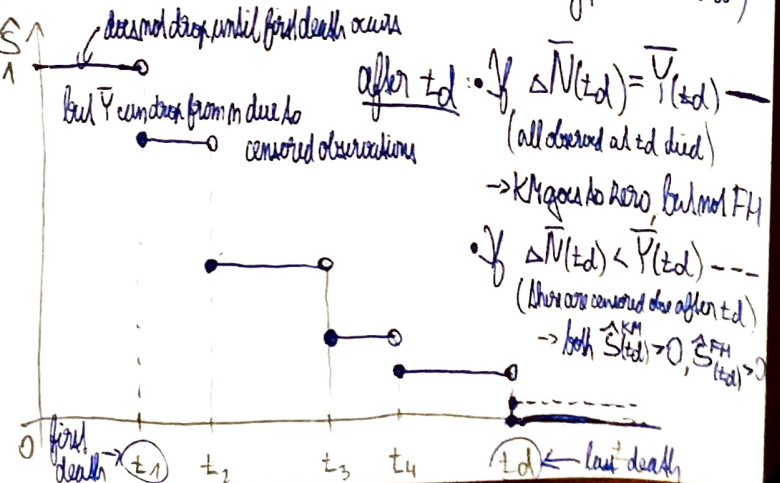 Ŝ
does not drop, until first death occurs
1
but Ȳ can drop from n due to
censored observations
after td : • If ΔN̄(td) = Ȳ(td) —
(all observed at td died)
→ KM goes to zero, but not FH
• If ΔN̄(td) < Ȳ(td) ---
(there are censored obs after td)
→ both Ŝ^KM(td) > 0, Ŝ^FH(td) > 0
0
first death → t1 t2 t3 t4 td ← last death